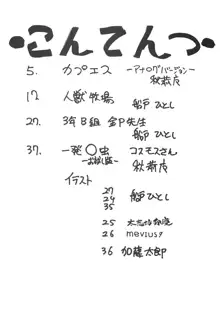 •こんてんつ•
5. カプエス
-アナログバージョン-
秋蕎庵
17 人獣牧場
船戸ひとし
27. 3年B組 金P先生
船戸ひとし
37. 一発〇虫 コスモスさん
-お試し版-
秋蕎庵
イラスト
27
29
35
船戸ひとし
25
26 mevius9
36 加藤太郎